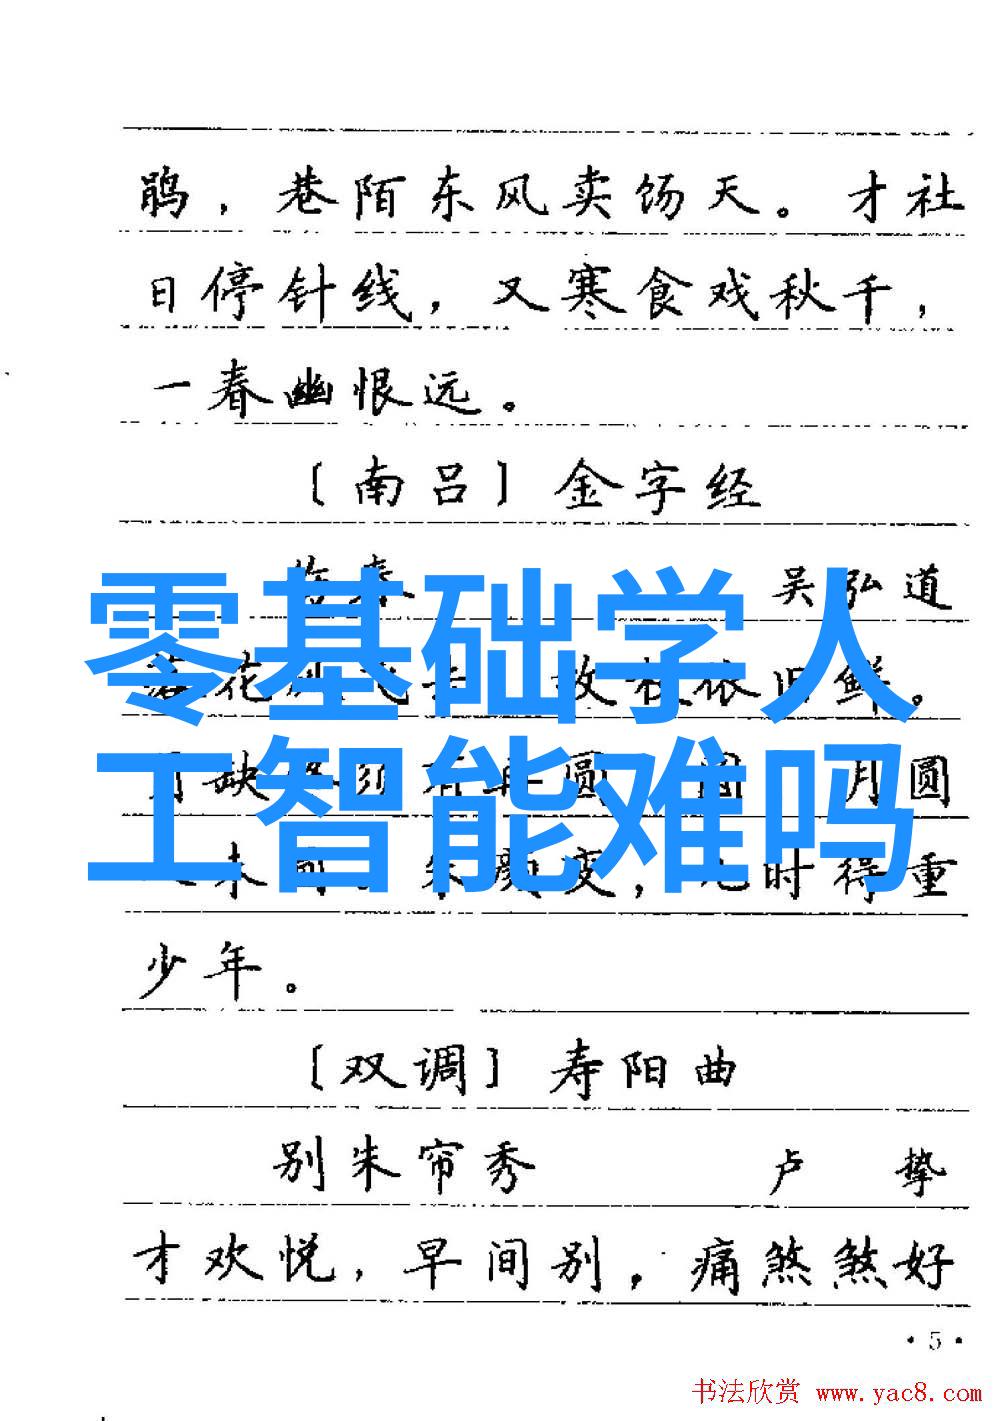 鹃，巷陌东风卖饧天。才社
日停针线，又寒食戏秋千，
一春幽恨远。
〔南吕〕金字经
春 吴弘道
花 故枝依旧鲜。
缺 须有 圆 圆 月圆
木 朱颜变，几时得重
少年。
零基础学人
工智能难吗
〔双调〕寿阳曲
别朱帘秀 卢挚
才欢悦，早间别，痛煞煞好
·5·
书法欣赏 www.yac8.com